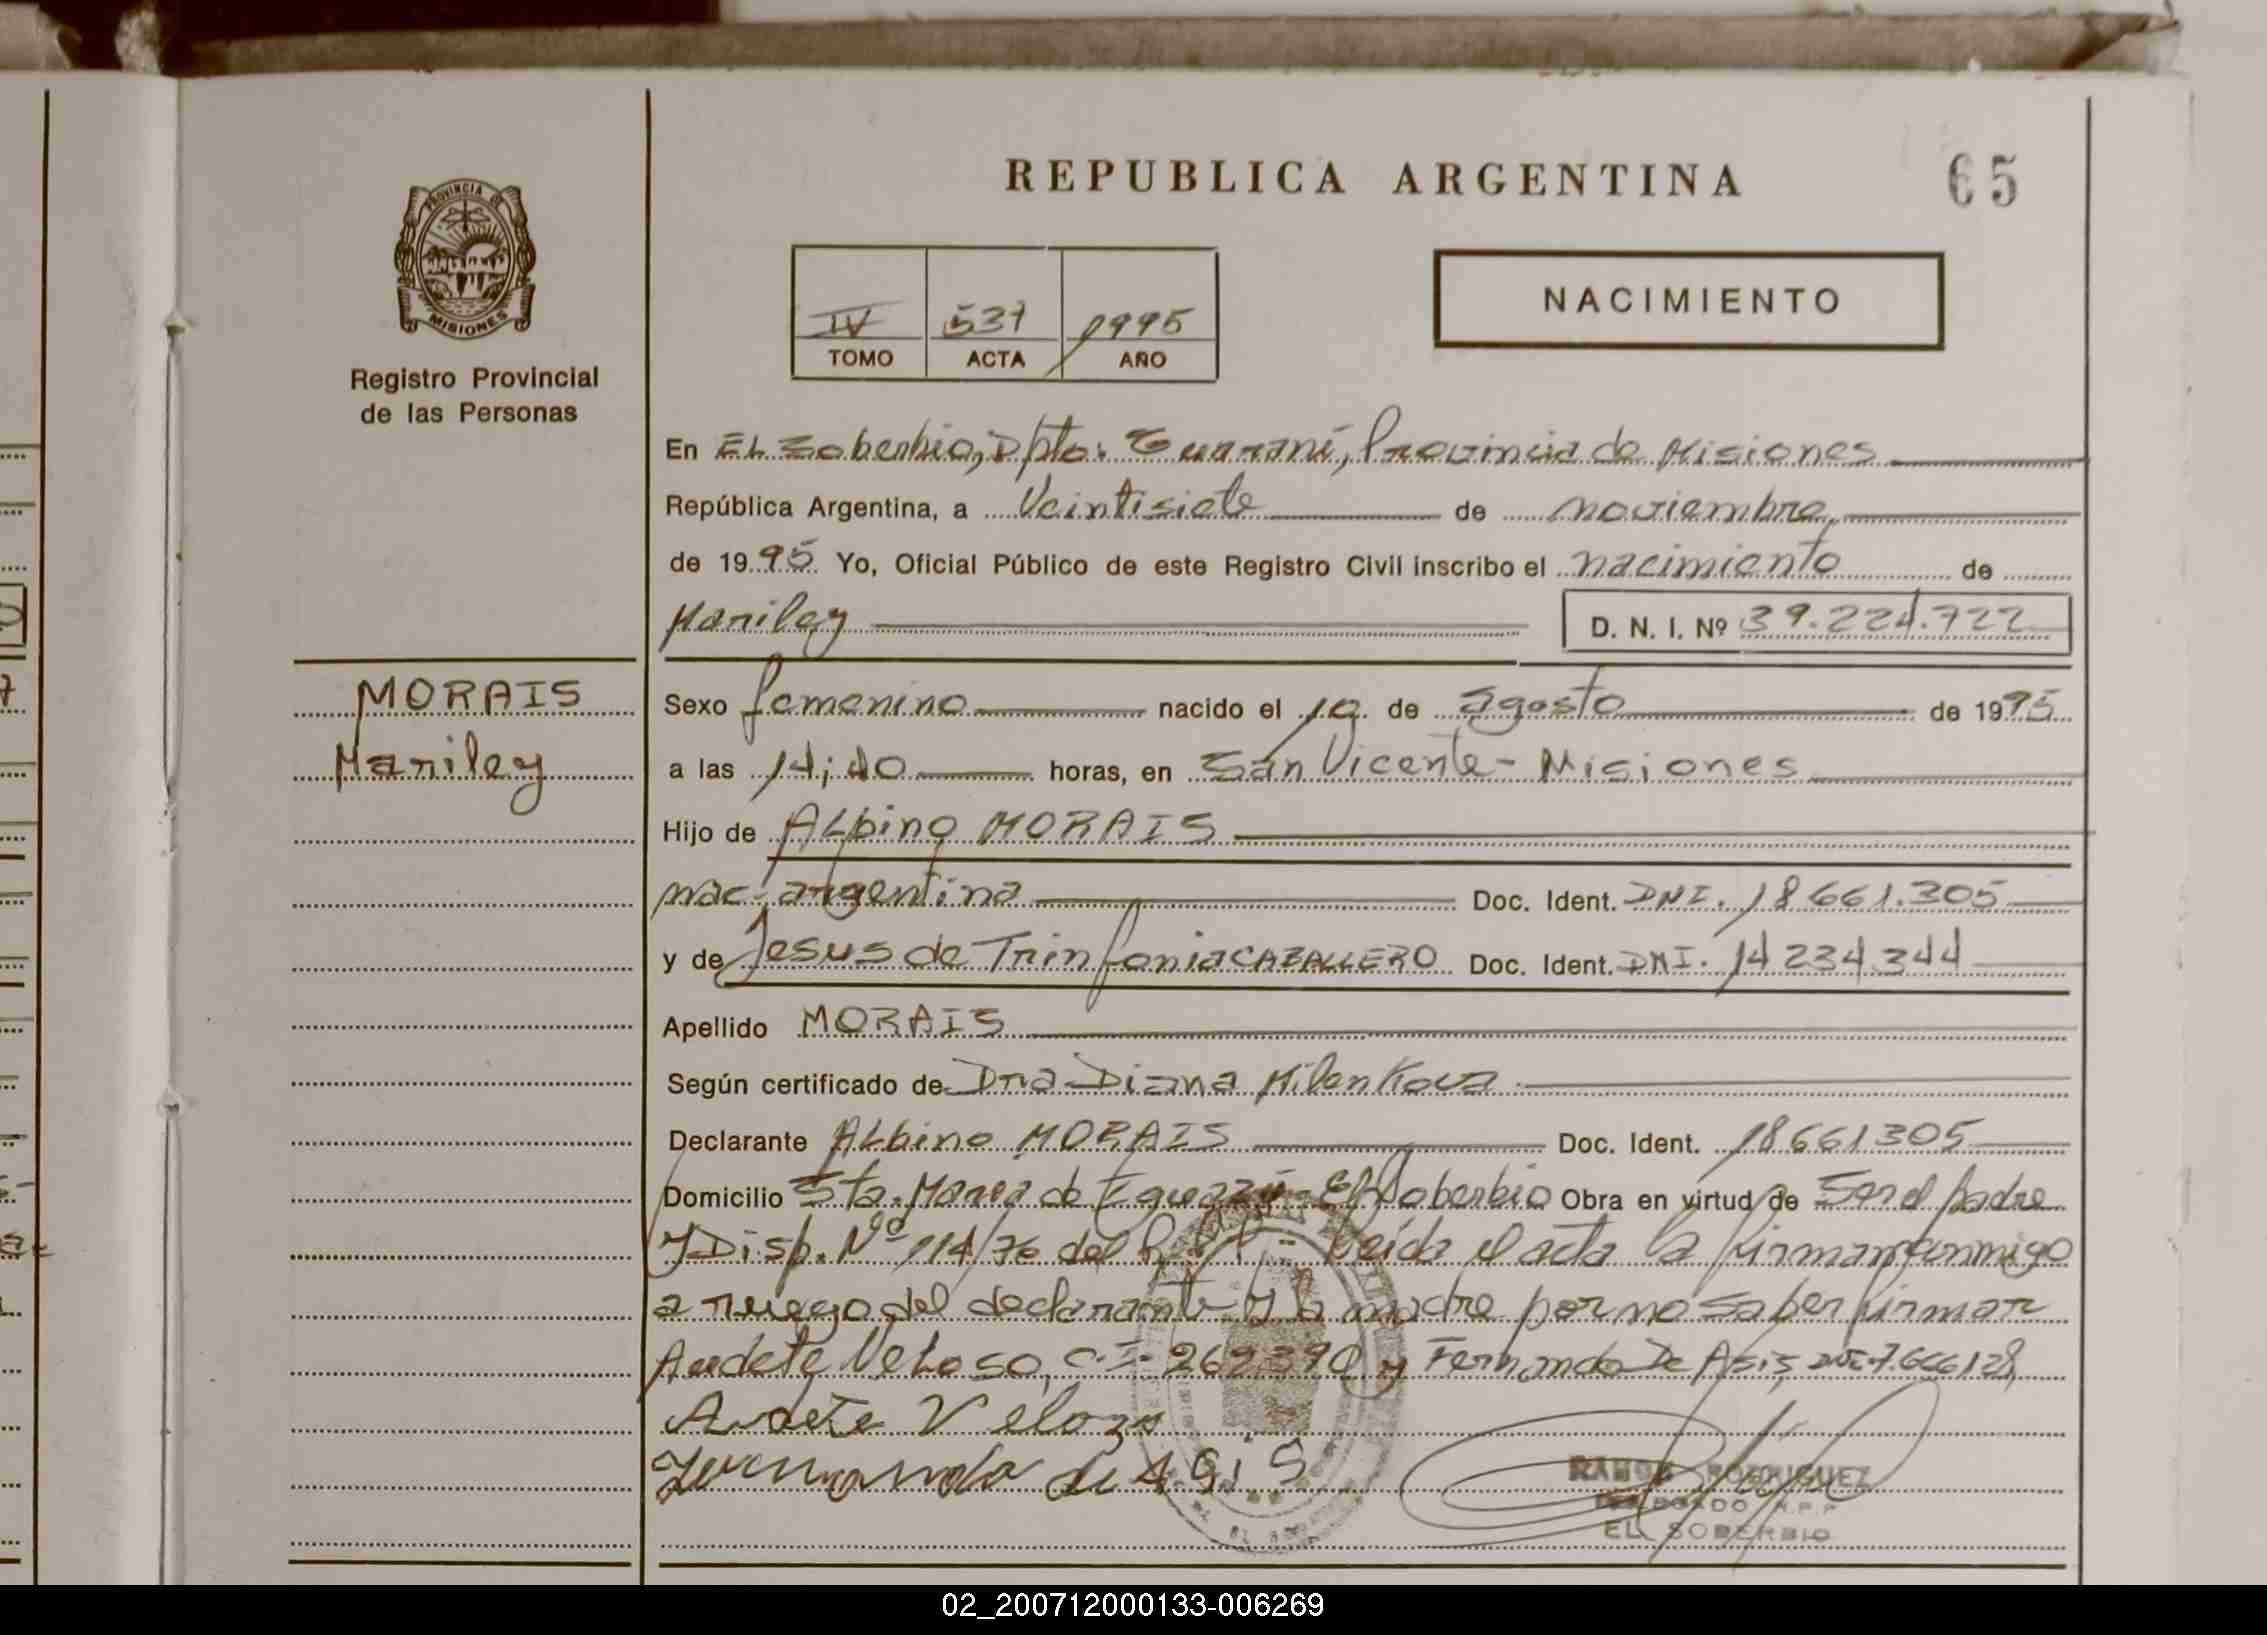 REPUBLICA ARGENTINA
65
PROVINCIA DE
MISIONES
Registro Provincial
de las Personas
IV 537 1995
TOMO ACTA AÑO
NACIMIENTO
En EL Soberbio, Dpto: Guaraní, Provincia de Misiones
República Argentina, a Veintisiete de noviembre
de 1995 Yo, Oficial Público de este Registro Civil inscribo el nacimiento de
Mariley D. N. I. Nº 39.224.722
MORAIS
Mariley
Sexo femenino nacido el 19 de agosto de 1995
a las 14;40 horas, en San Vicente - Misiones
Hijo de ALbino MORAIS
nac. argentina Doc. Ident. DNI. 18 661.305
y de Jesus de Trinfonia CABALLERO Doc. Ident. DNI. 14 234.344
Apellido MORAIS
Según certificado de Dra Diana Milenkova
Declarante ALbino MORAIS Doc. Ident. 18661305
Domicilio Sta. Maria de Eguazú - El Soberbio Obra en virtud de Ser el padre
y Disp. Nº 114/76 del Leída el acta la firman conmigo
a ruego del declarante y la madre por no saber firmar
Audete Veloso, C.I. 262390 y Fernando De Asis, 7.666128,
Audete Velozo
Fernando de Asis
RAMON RODRIGUEZ
R.P.P
EL SOBERBIO
02_200712000133-006269